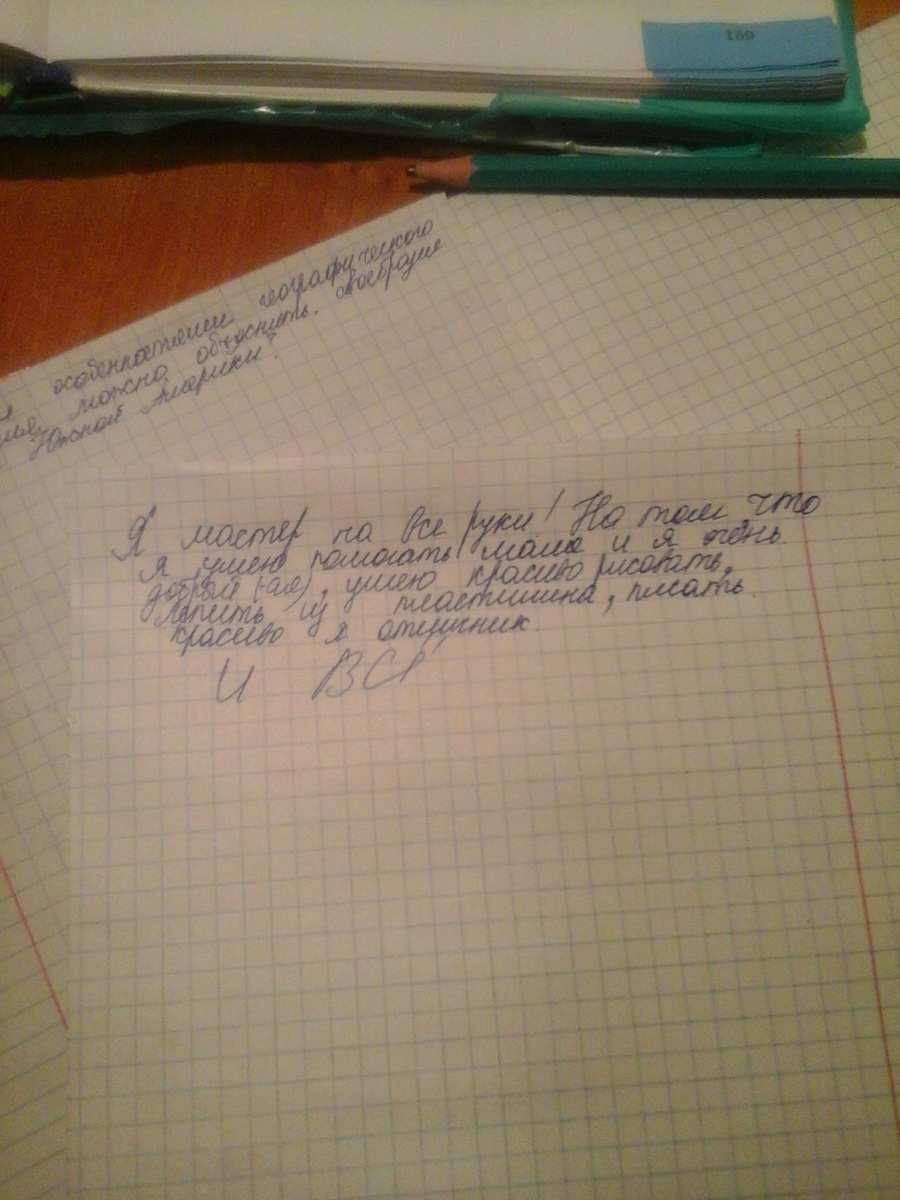 159
особенностями географического
можно объяснить, своеобразие
Южной Америки?
Я мастер на все руки! На том что
я умею помогать маме и я очень
добрый (-ая), умею красиво рисовать,
лепить из пластилина, писать
красиво я отличник.
И ВСЯ